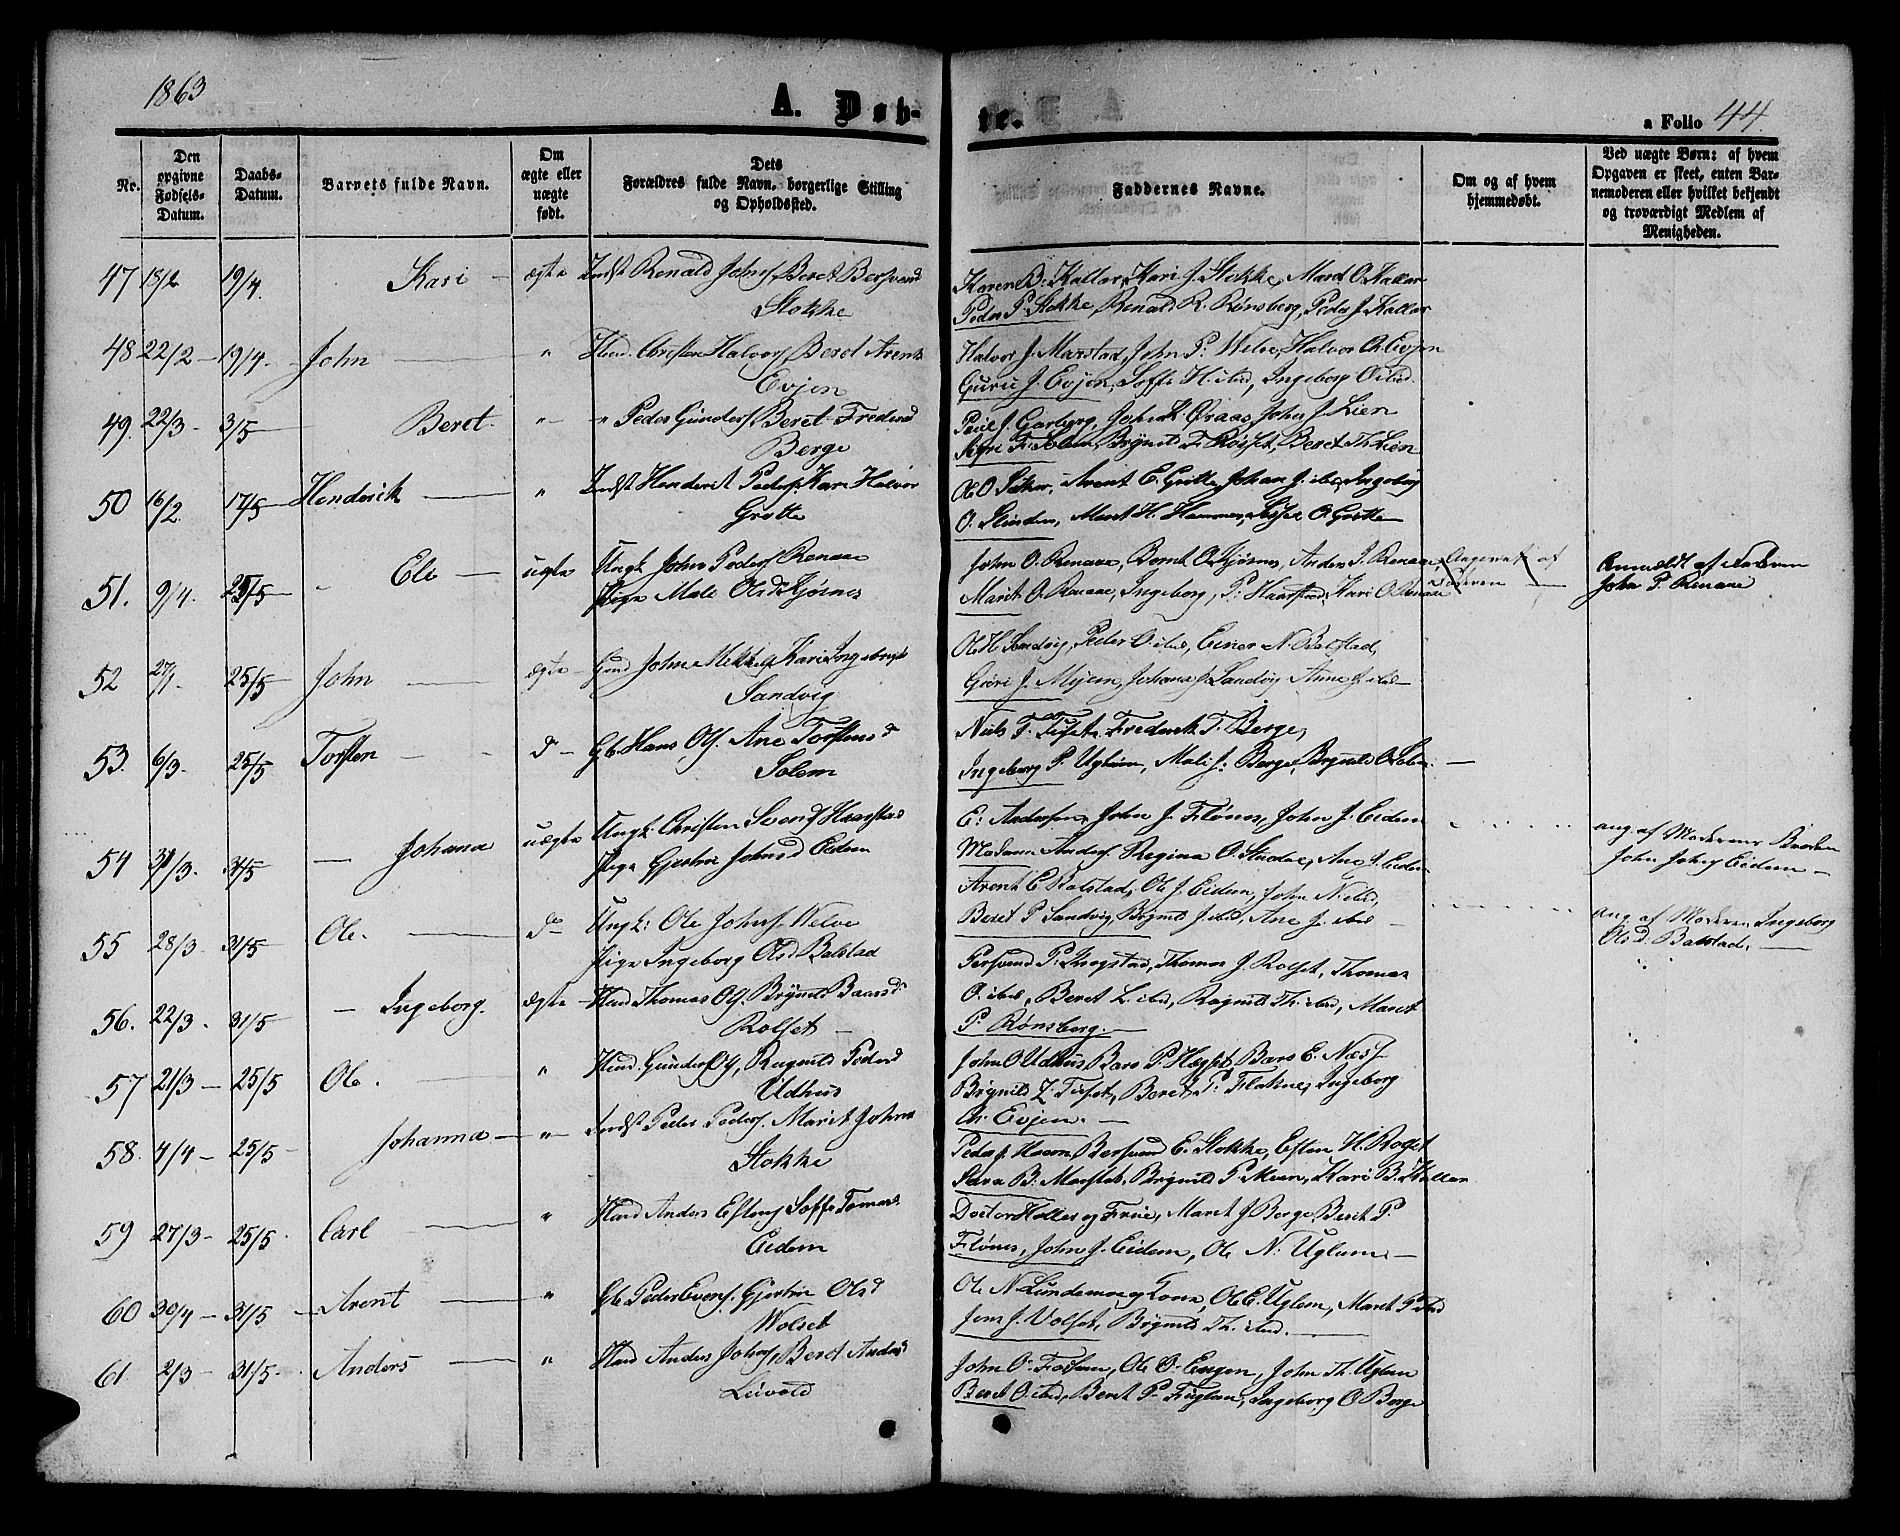 1863
A. Døb-
te.
a Folio 44.
Nr.
Den opgivne Fødsels-Datum.
Daabs-Datum.
Barnets fulde Navn.
Om ægte eller uægte født.
Dets Forældres fulde Navn, borgerlige Stilling og Opholdssted.
Faddernes Navne.
Om og af hvem hjemmedøbt.
Ved uægte Børn: af hvem Opgaven er skeet, enten Barnemoderen eller hvilket bekjendt og troværdigt Medlem af Menigheden.
47 18/2 19/4. Kari – ægte Indst Renald Johns, Beret Bersvend
Stokke
Karen B. Kallar, Kari J. Stokke, Marit O. Kallar
Peder P. Stokke, Renald R. Rønsberg, Peder J. Kallar
48 22/2 – 19/4. John – " Huud. Christen Halvors, Beret Arents
Evjen
Halvor J. Marstad, John P. Welve, Halvor Ch. Evjen
Guru J. Evjen, Soffi H. ibid, Ingeborg O. ibid.
49. 22/3 – 3/5 Beret. " – " Peder Gunders, Beret Fredrikd
Berge
Paul J. Garberg, John Øraas, John J. Lien
F. Solem, Brynild F. Rolset, Beret Th. Lien
50 16/2. 17/5 – Hendrik – " Indst Henderik Peders. Kari Halvor
Grøtte
Ole O. Arent E. Grøtte, Johan J. ibid, Ingeborg
O. Slinden, Marit H. Hammer, Sissel O. Grøtte
51. 9/4. 25/5 – Eli – uægte Ungk. John Peders. Renaae
Pige Male Olsd Kjøsnes
John O. Renaae, Bernt O. Kjøsnes, Anders P. Renaae, Angivet af
Marit O. Renaae, Ingeborg P. Haarstad, Kari O. Renaae
Anmeldt af Faderen
John P. Renaae
52 27/1. 25/5 John – ægte Gmd John Mikkels Kari Ingebrigtd
Sandvig
Ole H. Sandvig, Peder O. ibid, Einer N. Balstad,
Guri J. Mejeen, Johana J. Sandvig Anne J. ibid –
53. 6/3. 25/5 Torsten – do – Gb. Hans Ols. Ane Torstensd
Solem
Niels F. Tufset, Frederik T. Berge,
Ingeborg P. Uglem, Mali J. Berge, Brynild O. Solem. –
54 31/3. 31/5 – Johana uægte Ungk. Christen Svends Haarstad
Pige Gjertrue Johnsd Eidem
E. Andersen, John J. Flønes, John J. Eidem
Madam Anders. Regina O. Stude, Ane J. Eidem
ang. af Moderens Broder
John Johns Eidem –
55 28/3 31/5 Ole. – do Ungk: Ole Johns. Welve
Pige Ingeborg Olsd Balstad
Arent E. Balstad, Ole J. Eidem, John N. ibid,
Beret P. Sandvig, Brynild J. ibid, Ane J. ibid –
ang. af Moderen Ingeborg
Olsd. Balstad. –
56. 22/3. 31/5 – Ingeborg. ægte – Huud Thomas Ols. Brynild Baarsd.
Rolset –
Bersvend P. Krogstad, Thomas J. Rolset, Thomas
O. ibid, Beret L. ibid, Ragnild Th. ibid, Maret
P. Rønsberg. –
57 21/3 – 25/5 Ole. – " Huud. Gunder Ols, Ragnild Pedersd
Udhus
John O. Udhus, Baro P. Hægset, Bars E. Næss
Brynild Z. Tufset, Beret P. Flakne, Ingeborg
Ch. Evjen. –
58. 4/4 – 25/5 – Johanna – " – Indst Peder Peders. Marit Johns
Stokke
Peder J. Hoem, Bersvend E. Stokke, Esten H. Rolset
Sara B. Marstad, Brynild P. Meien, Kari B. Kallar
59 27/3 – 25/5. Carl – " Huud Anders Estens, Soffi Tomas
Eidem
Doctor Holles og Frue, Maret J. Berge, Beret P.
Flønes, John J. Eidem, Ole N. Uglem. –
60 30/4 – 31/5 – Arent – " Gb. Peder Evens. Gjertru Olsd
Wolset
Ole N. Lundemo og Kona, Ole E. Uglem, Maret P. ibid
Jens J. Volset, Brynild Th. ibid. –
61. 2/3 – 31/5. Anders – " Huud Anders Johns, Beret Andersd
Leivold
John O. Fossem, Ole O. Engen, John Th. Uglem
Beret O. ibid, Beret P. Fuglem, Ingeborg O. Berge